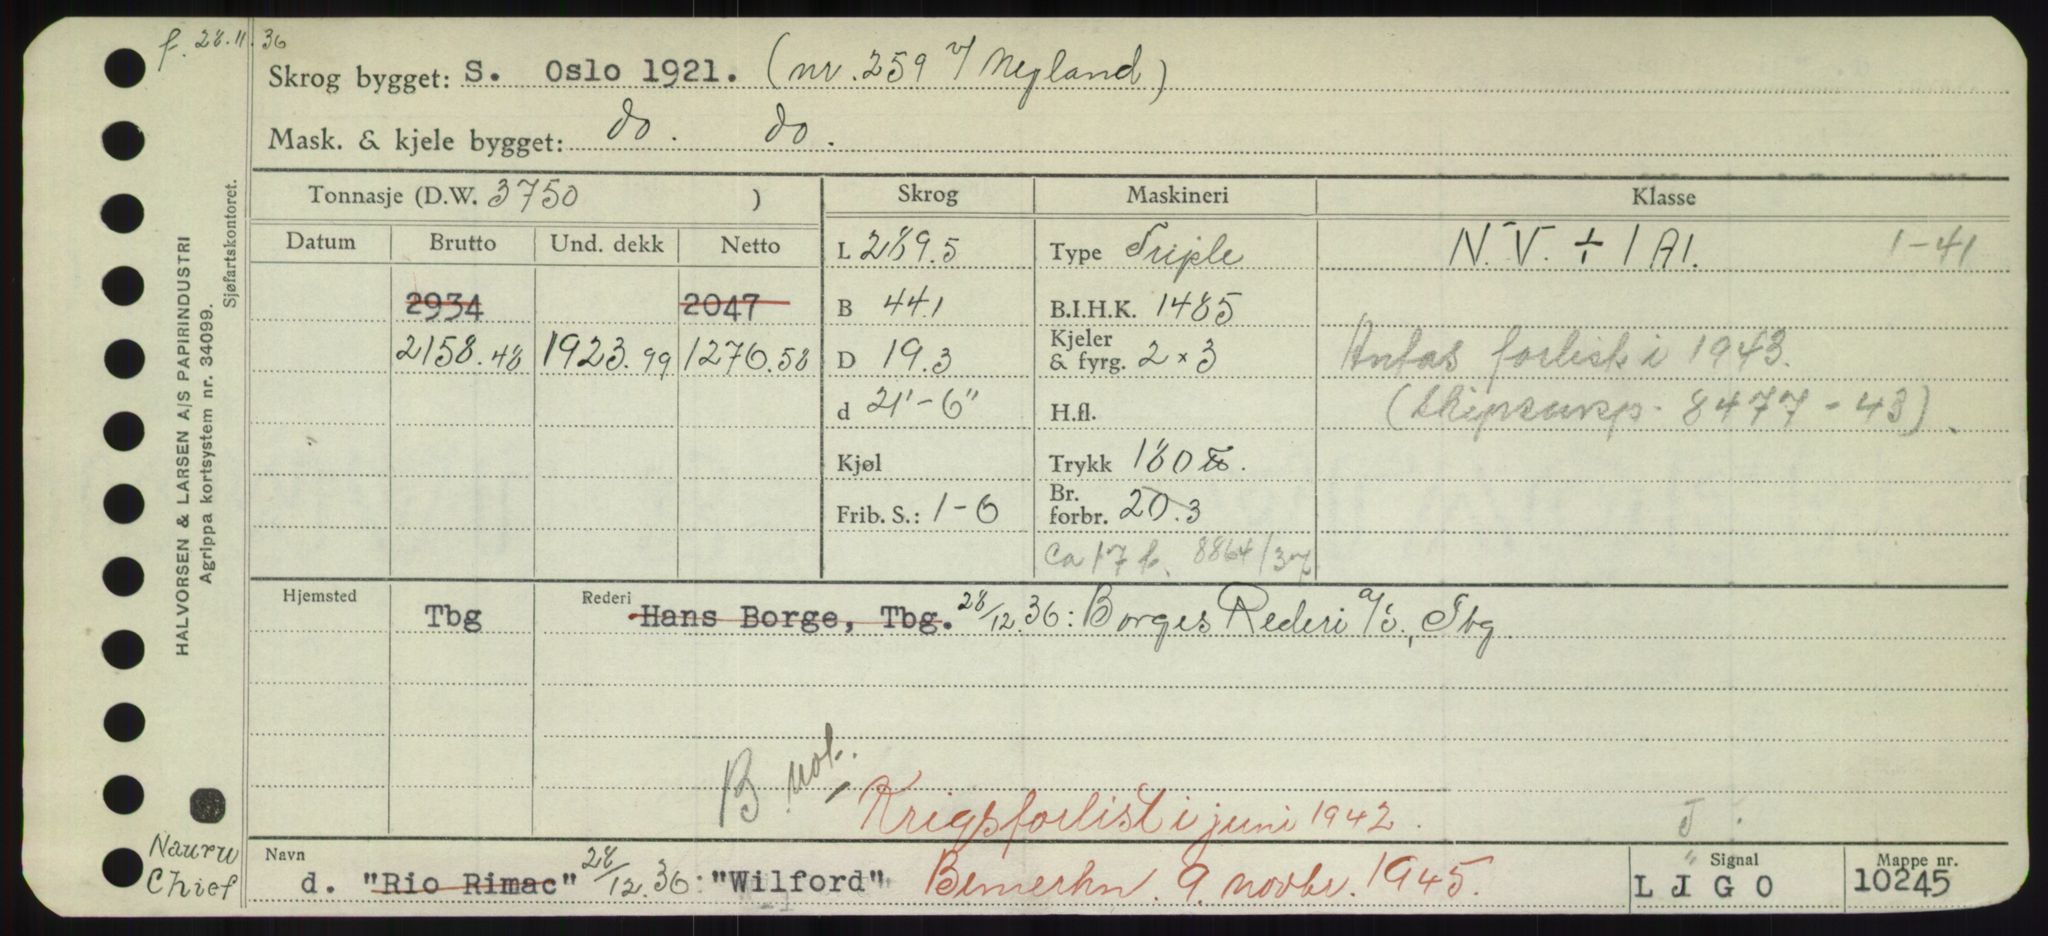 f. 28.11.36
Skrog bygget: S. Oslo 1921. (nr. 259 v/ Nyland)
Mask. & kjele bygget: do. do.
Tonnasje (D.W. 3750 )
Skrog
Maskineri
Klasse
Datum Brutto Und. dekk Netto
L 289.5
Type Triple
N.V. + 1A1. 1-41
2934 2047
B 44.1
B.I.H.K. 1485
2158.48 1923.99 1276.58
D 19.3
Kjeler & fyrg. 2 x 3
Antas forlist i 1943.
d 21'-6"
H.fl.
(Skipsinsp. 8477-43).
Kjøl
Trykk 180 lbs.
Frib. S.: 1-6
Br. forbr. 20.3
ca 17 t. 8864/37
Hjemsted Tbg Rederi Hans Borge, Tbg. 28/12.36: Borges Rederi a/s, Tbg.
B not.
Krigsforlist i juni 1942.
J
Navn d. "Rio Rimac" 28/12.36: "Wilford" Bemerkn. 9. novbr. 1945.
Signal L J G O
Mappe nr. 10245
Nauru Chief
HALVORSEN & LARSEN A/S PAPIRINDUSTRI
Agrippa kortsystem nr. 34099.
Sjøfartskontoret.